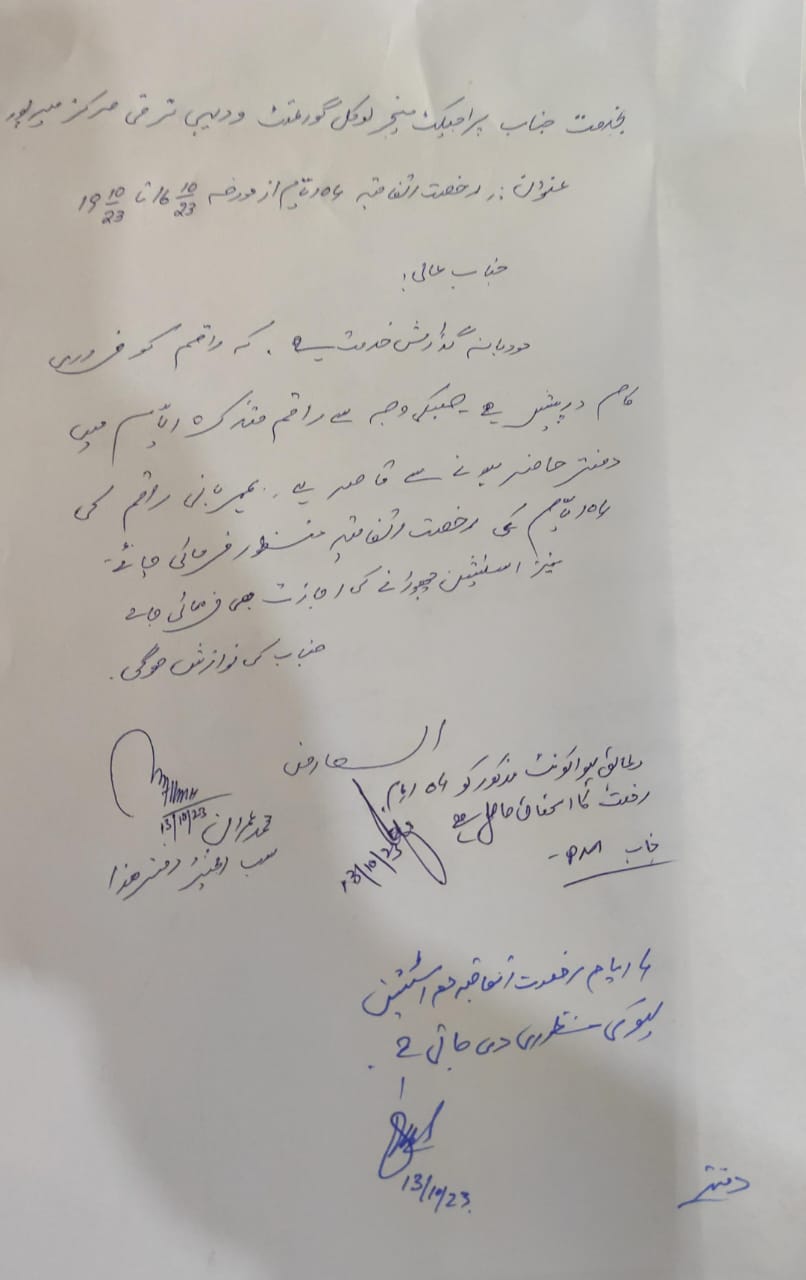 بخدمت جناب پراجیکٹ مینجر لوکل گورنمنٹ و دیہی ترقی مرکز میرپور
عنوان :۔ رخصت اتفاقیہ 04 ایام از مورخہ 16 10/23 تا 19 10/23
جناب عالی!
مودبانہ گذارش خدمت ہے ۔ کہ راقم کو ضروری
کام درپیش ہے جسکی وجہ سے راقم متذکرہ ایام میں
دفتر حاضر ہونے سے قاصر ہے ۔ بمہربانی راقم کی
04 ایام کی رخصت اتفاقیہ منظور فرمائی جائے۔
نیز اسٹیشن چھوڑنے کی اجازت بھی فرمائی جائے
جناب کی نوازش ہوگی ۔
العارض
13/10/23
محمد عمران
سب انجینئر دفتر ھذا
بمطابق لیو اکونٹ مذکور کو 04 ایام
رخصت کا استحقاق حاصل ہے
جناب PM۔
13/10/23
4 ایام رخصت اتفاقیہ مع اسٹیشن
لیو کی منظوری دی جاتی ہے ۔
13/10/23
دفتر